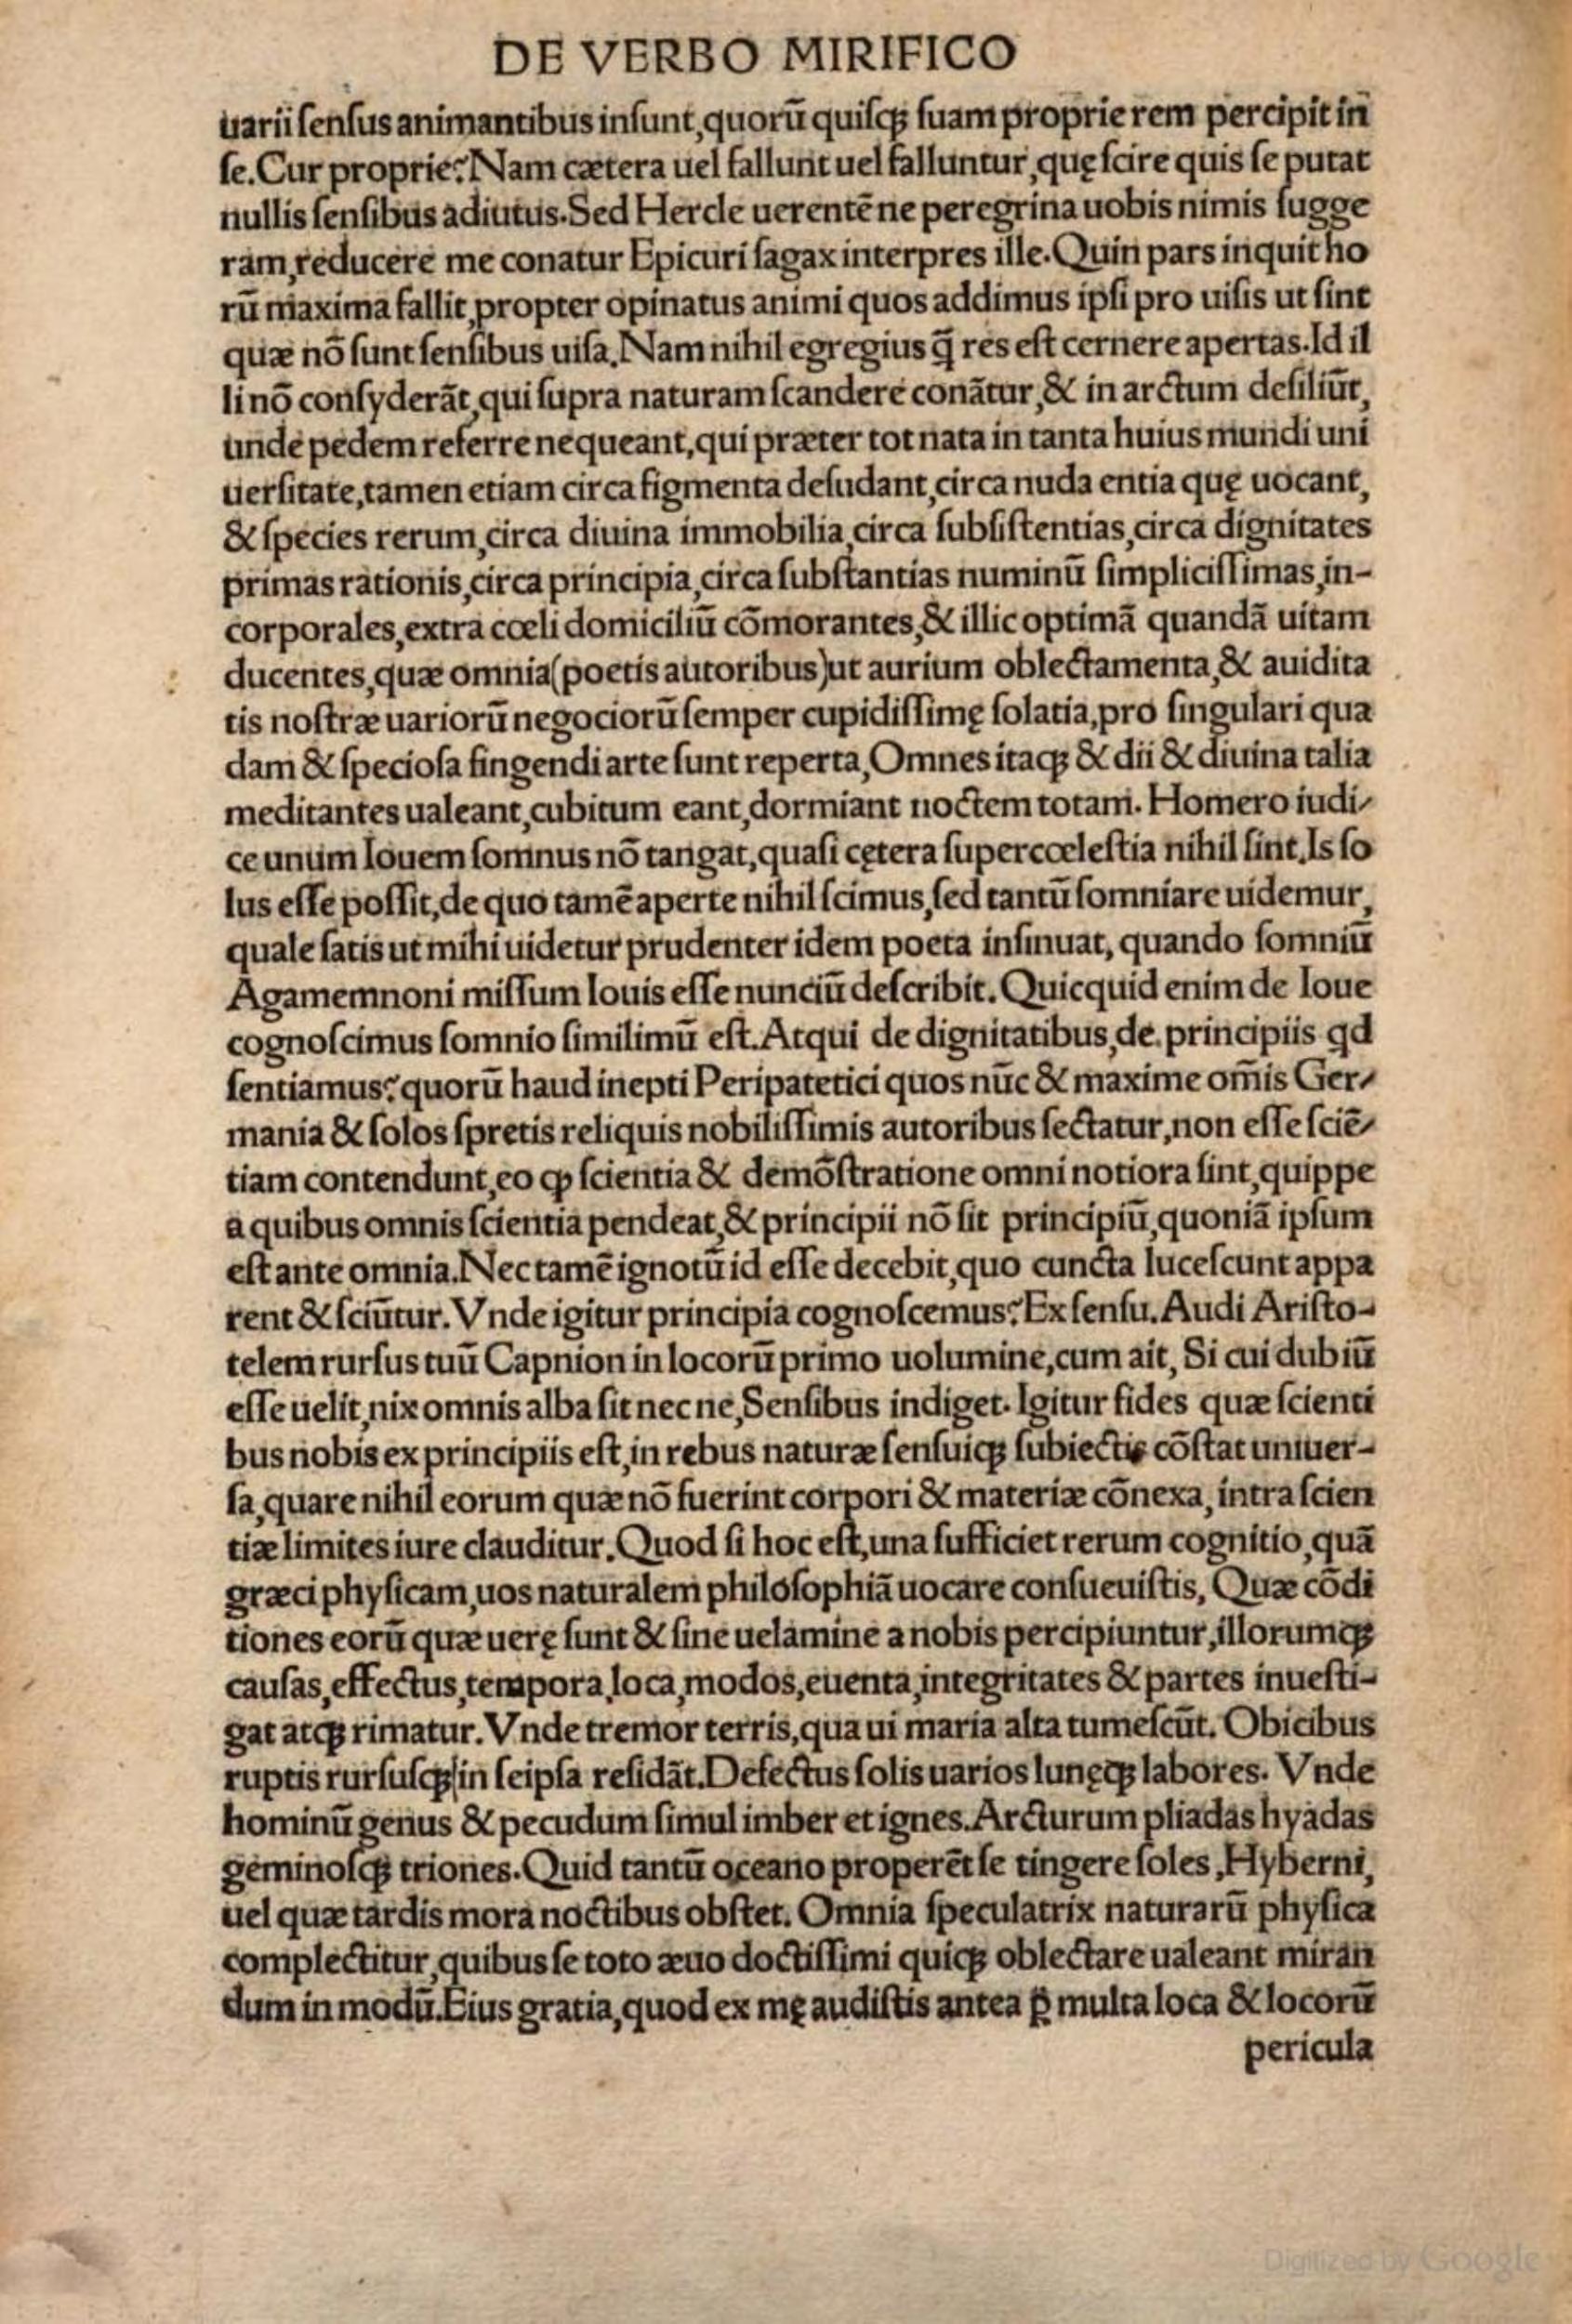 DE VERBO MIRIFICO
uarii ſenſus animantibus inſunt, quorū quiſqꝫ ſuam proprie rem percipit in
ſe. Cur proprie? Nam cætera uel fallunt uel falluntur, quę ſcire quis ſe putat
nullis ſenſibus adiutus. Sed Hercle uerentē ne peregrina uobis nimis ſugge
ram, reducere me conatur Epicuri ſagax interpres ille. Quin pars inquit ho
rū maxima fallit, propter opinatus animi quos addimus ipſi pro uiſis ut ſint
quæ nō ſunt ſenſibus uiſa. Nam nihil egregius q̄ res eſt cernere apertas. Id il
li nō conſyderāt, qui ſupra naturam ſcandere conātur, & in arctum deſiliūt,
unde pedem referre nequeant, qui præter tot nata in tanta huius mundi uni
uerſitate, tamen etiam circa figmenta deſudant, circa nuda entia quę uocant,
& ſpecies rerum, circa diuina immobilia, circa ſubſiſtentias, circa dignitates
primas rationis, circa principia, circa ſubſtantias numinū ſimpliciſſimas, in-
corporales, extra cœli domiciliū cōmorantes, & illic optimā quandā uitam
ducentes, quæ omnia (poetis autoribus) ut aurium oblectamenta, & auidita
tis noſtræ uariorū negociorū ſemper cupidiſſimę ſolatia, pro ſingulari qua
dam & ſpecioſa fingendi arte ſunt reperta, Omnes itaqꝫ & dii & diuina talia
meditantes ualeant, cubitum eant, dormiant noctem totam. Homero iudi-
ce unum Iouem ſomnus nō tangat, quaſi cętera ſupercœleſtia nihil ſint. Is ſo
lus eſſe poſſit, de quo tamē aperte nihil ſcimus, ſed tantū ſomniare uidemur,
quale ſatis ut mihi uidetur prudenter idem poeta inſinuat, quando ſomniū
Agamemnoni miſſum Iouis eſſe nunciū deſcribit. Quicquid enim de Ioue
cognoſcimus ſomnio ſimilimū eſt. Atqui de dignitatibus, de principiis qd
ſentiamus? quorū haud inepti Peripatetici quos nūc & maxime om̄is Ger-
mania & ſolos ſpretis reliquis nobiliſſimis autoribus ſectatur, non eſſe ſciē-
tiam contendunt, eo ꝙ ſcientia & demōſtratione omni notiora ſint, quippe
a quibus omnis ſcientia pendeat, & principii nō ſit principiū, quoniā ipſum
eſt ante omnia. Nec tamē ignotū id eſſe decebit, quo cuncta luceſcunt appa
rent & ſciūtur. Vnde igitur principia cognoſcemus? Ex ſenſu. Audi Ariſto-
telem rurſus tuū Capnion in locorū primo uolumine, cum ait, Si cui dubiū
eſſe uelit, nix omnis alba ſit nec ne, Senſibus indiget. Igitur fides quæ ſcienti
bus nobis ex principiis eſt, in rebus naturæ ſenſuiqꝫ ſubiectis cōſtat uniuer-
ſa, quare nihil eorum quæ nō fuerint corpori & materiæ cōnexa, intra ſcien
tiæ limites iure clauditur. Quod ſi hoc eſt, una ſufficiet rerum cognitio, quā
græci phyſicam, uos naturalem philoſophiā uocare conſueuiſtis, Quæ cōdi
tiones eorū quæ uerę ſunt & ſine uelamine a nobis percipiuntur, illorumqꝫ
cauſas, effectus, tempora, loca, modos, euenta, integritates & partes inueſti-
gat atqꝫ rimatur. Vnde tremor terris, qua ui maria alta tumeſcūt. Obicibus
ruptis rurſuſqꝫ in ſeipſa reſidāt. Defectus ſolis uarios lunęqꝫ labores. Vnde
hominū genus & pecudum ſimul imber et ignes. Arcturum pliadas hyadas
geminoſqꝫ triones. Quid tantū oceano properēt ſe tingere ſoles, Hyberni,
uel quæ tardis mora noctibus obſtet. Omnia ſpeculatrix naturarū phyſica
complectitur, quibus ſe toto æuo doctiſſimi quiqꝫ oblectare ualeant miran
dum in modū. Eius gratia, quod ex mę audiſtis antea ꝑ multa loca & locorū
pericula
Digitized by Google